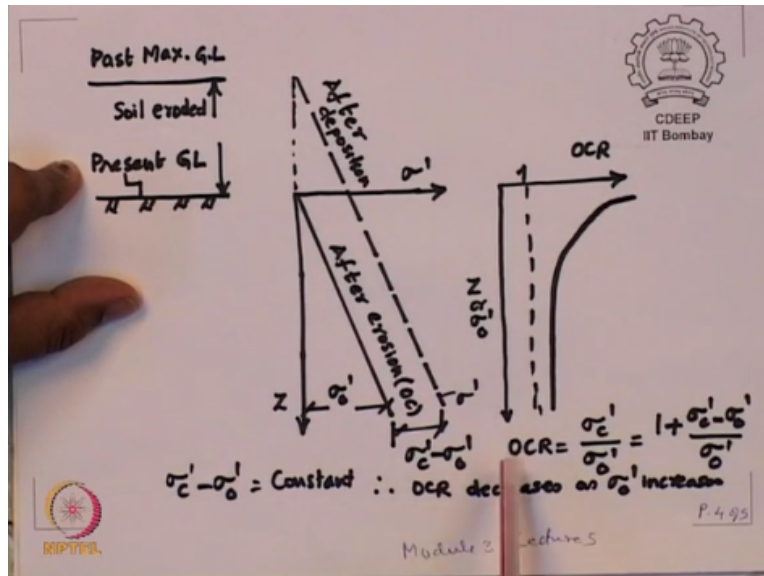 Past Max. G.L
Soil eroded
Present GL
After deposition
σ'
After erosion (OC)
Z
σ₀'
σ'
σc'-σ₀'
CDEEP
IIT Bombay
OCR
1
OCR = σc'/σ₀' = 1+ (σc'-σ₀')/σ₀'
σc'-σ₀' = Constant ∴ OCR decreases as σ₀' increases
P.495
Module 3 Lecture 5
NPTEL